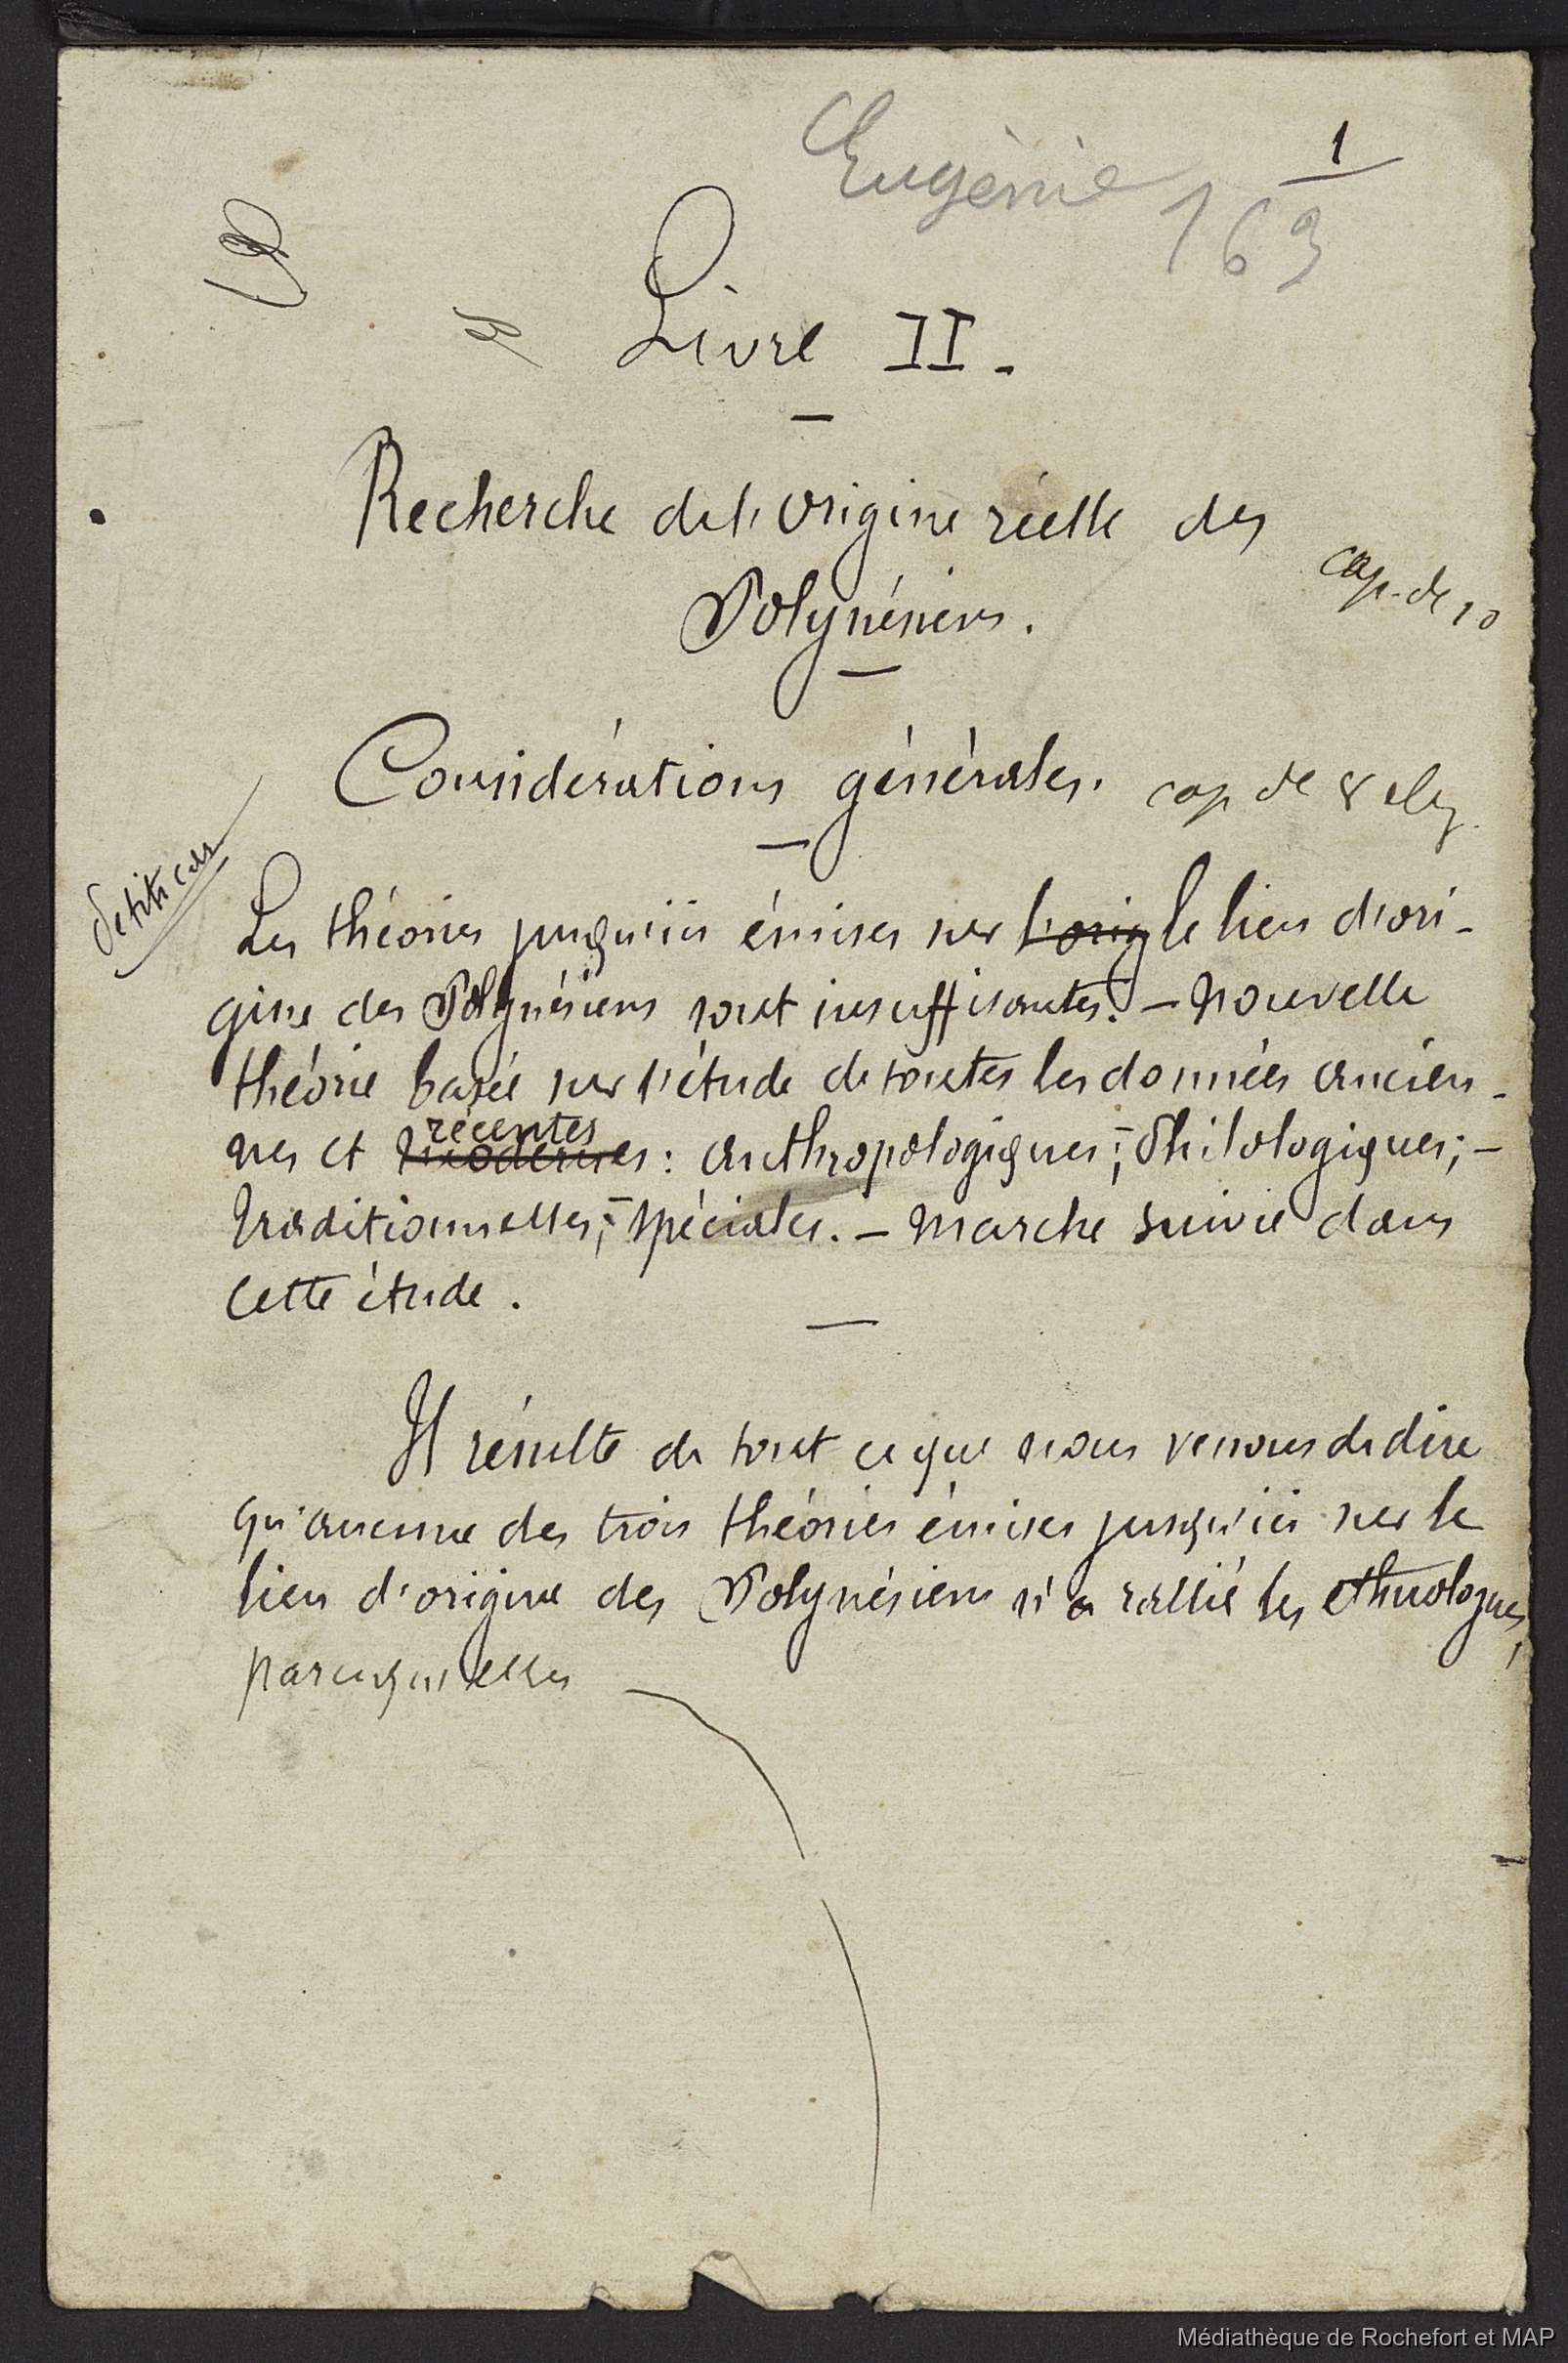 Eugénie
1
163
Livre II.
Recherche de l'origine réelle des
Polynésiens.
cap. de 10
Considérations générales.
cap de 8 elz.
Petit cas
Les théories jusqu'ici émises sur l'orig le lieu d'ori-
gine des Polynésiens sont insuffisantes. — Nouvelle
théorie basée sur l'étude de toutes les données ancien-
récentes
nes et modernes : anthropologiques; — Philologiques; —
Traditionnelles; — spéciales. — Marche suivie dans
cette étude.
Il résulte de tout ce que nous venons de dire
qu'aucune des trois théories émises jusqu'ici sur le
lieu d'origine des Polynésiens n'a rallié les ethnologues,
parcequ'elles
Médiathèque de Rochefort et MAP